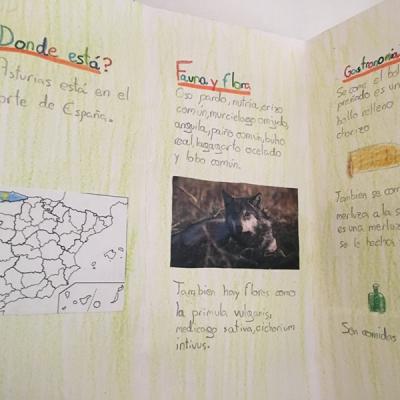 Donde está?
Asturias está en el
norte de España.
Fauna y flora
Oso pardo, nutria, erizo
común, murcielago
anguila, paiño común, buho
real, lagarto ocelado
y lobo común.
Tambien hay flores como
la primula vulgaris,
medicago sativa, cichorium
intivus.
Gastronomia
Se come el bol
preñado es un
bollo relleno
chorizo
Tambien se com
merluza a la s
es una merluz
se le hechas
Son comidas